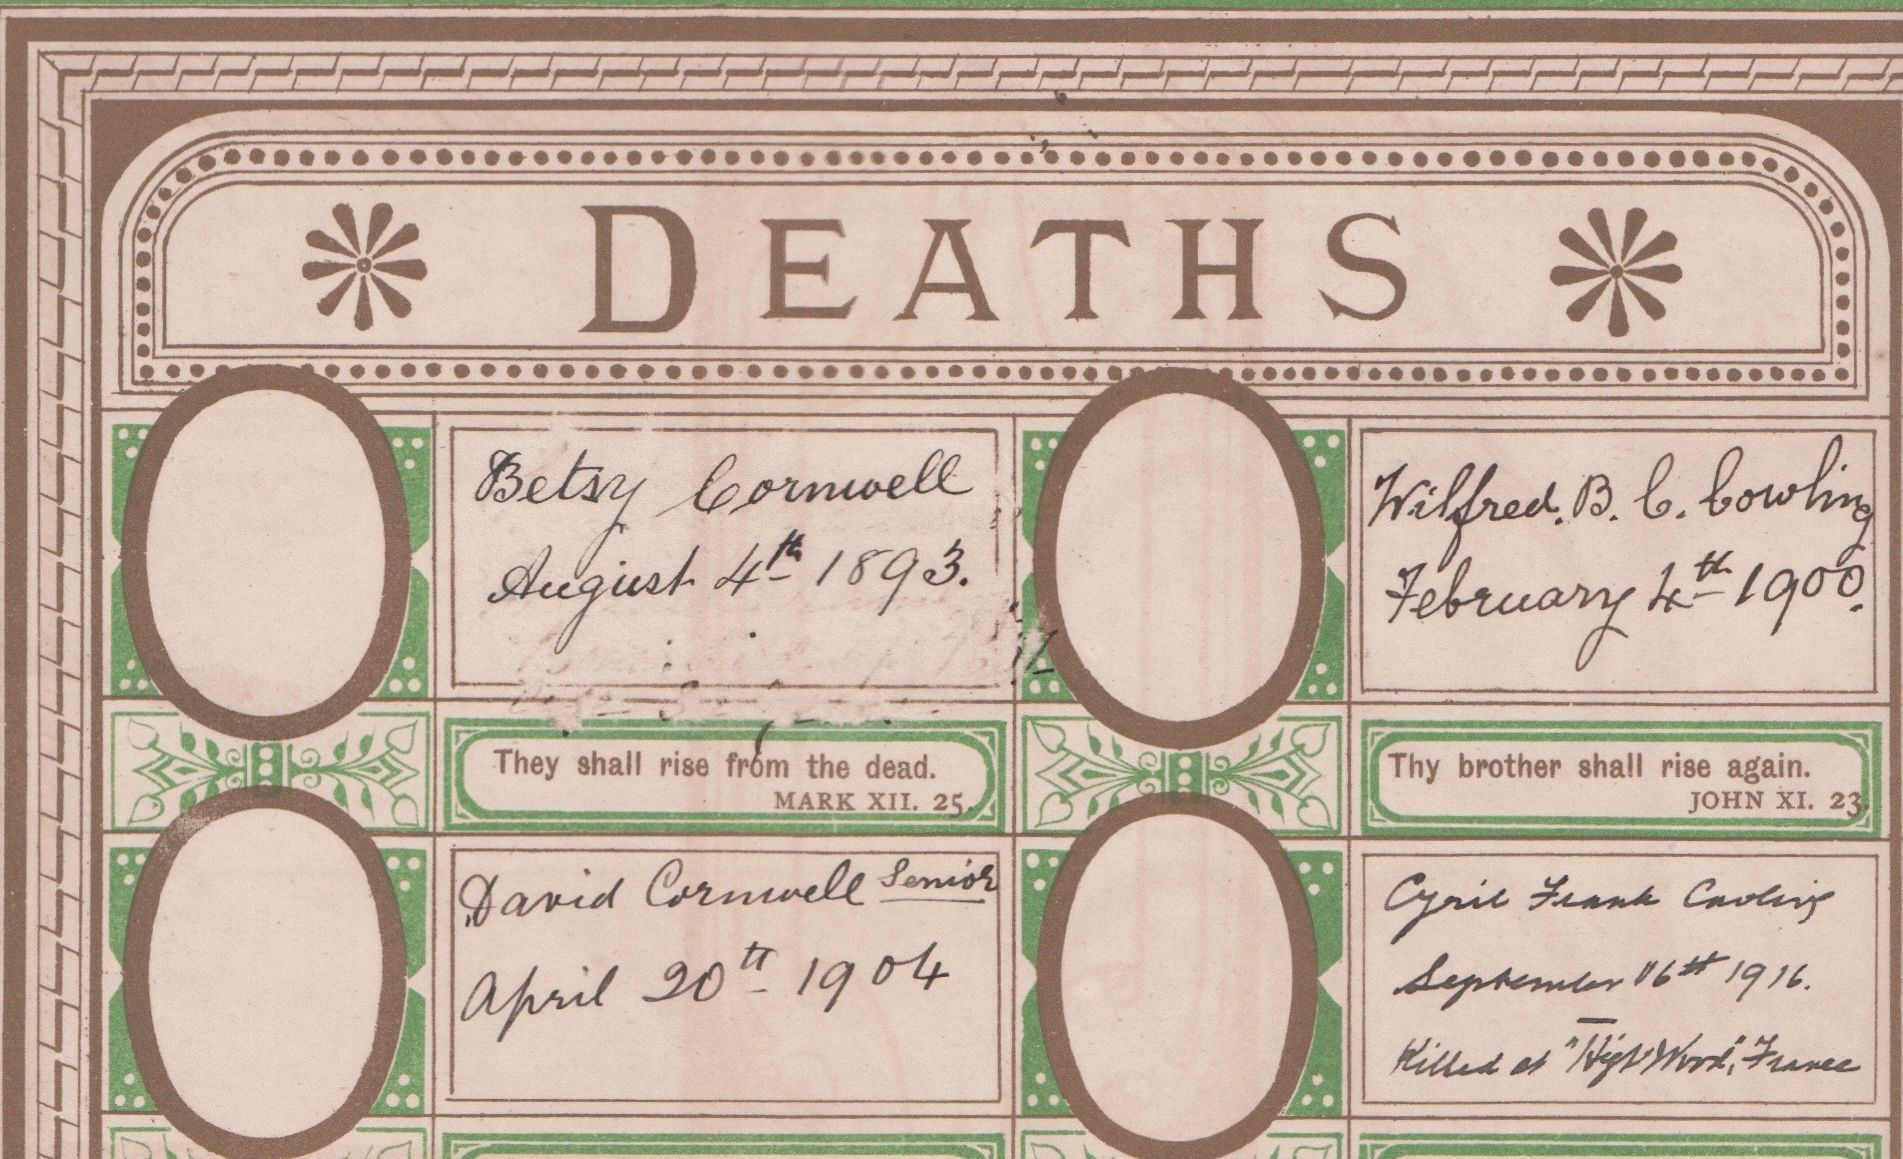 DEATHS
Betsy Cornwell
August 4th 1893.
They shall rise from the dead.
MARK XII. 25.
Wilfred. B. C. Cowling
February 4th 1900.
Thy brother shall rise again.
JOHN XI. 23.
David Cornwell Senior
April 20th 1904
Cyril Frank Cowling
September 16th 1916.
Killed at "High Wood", France